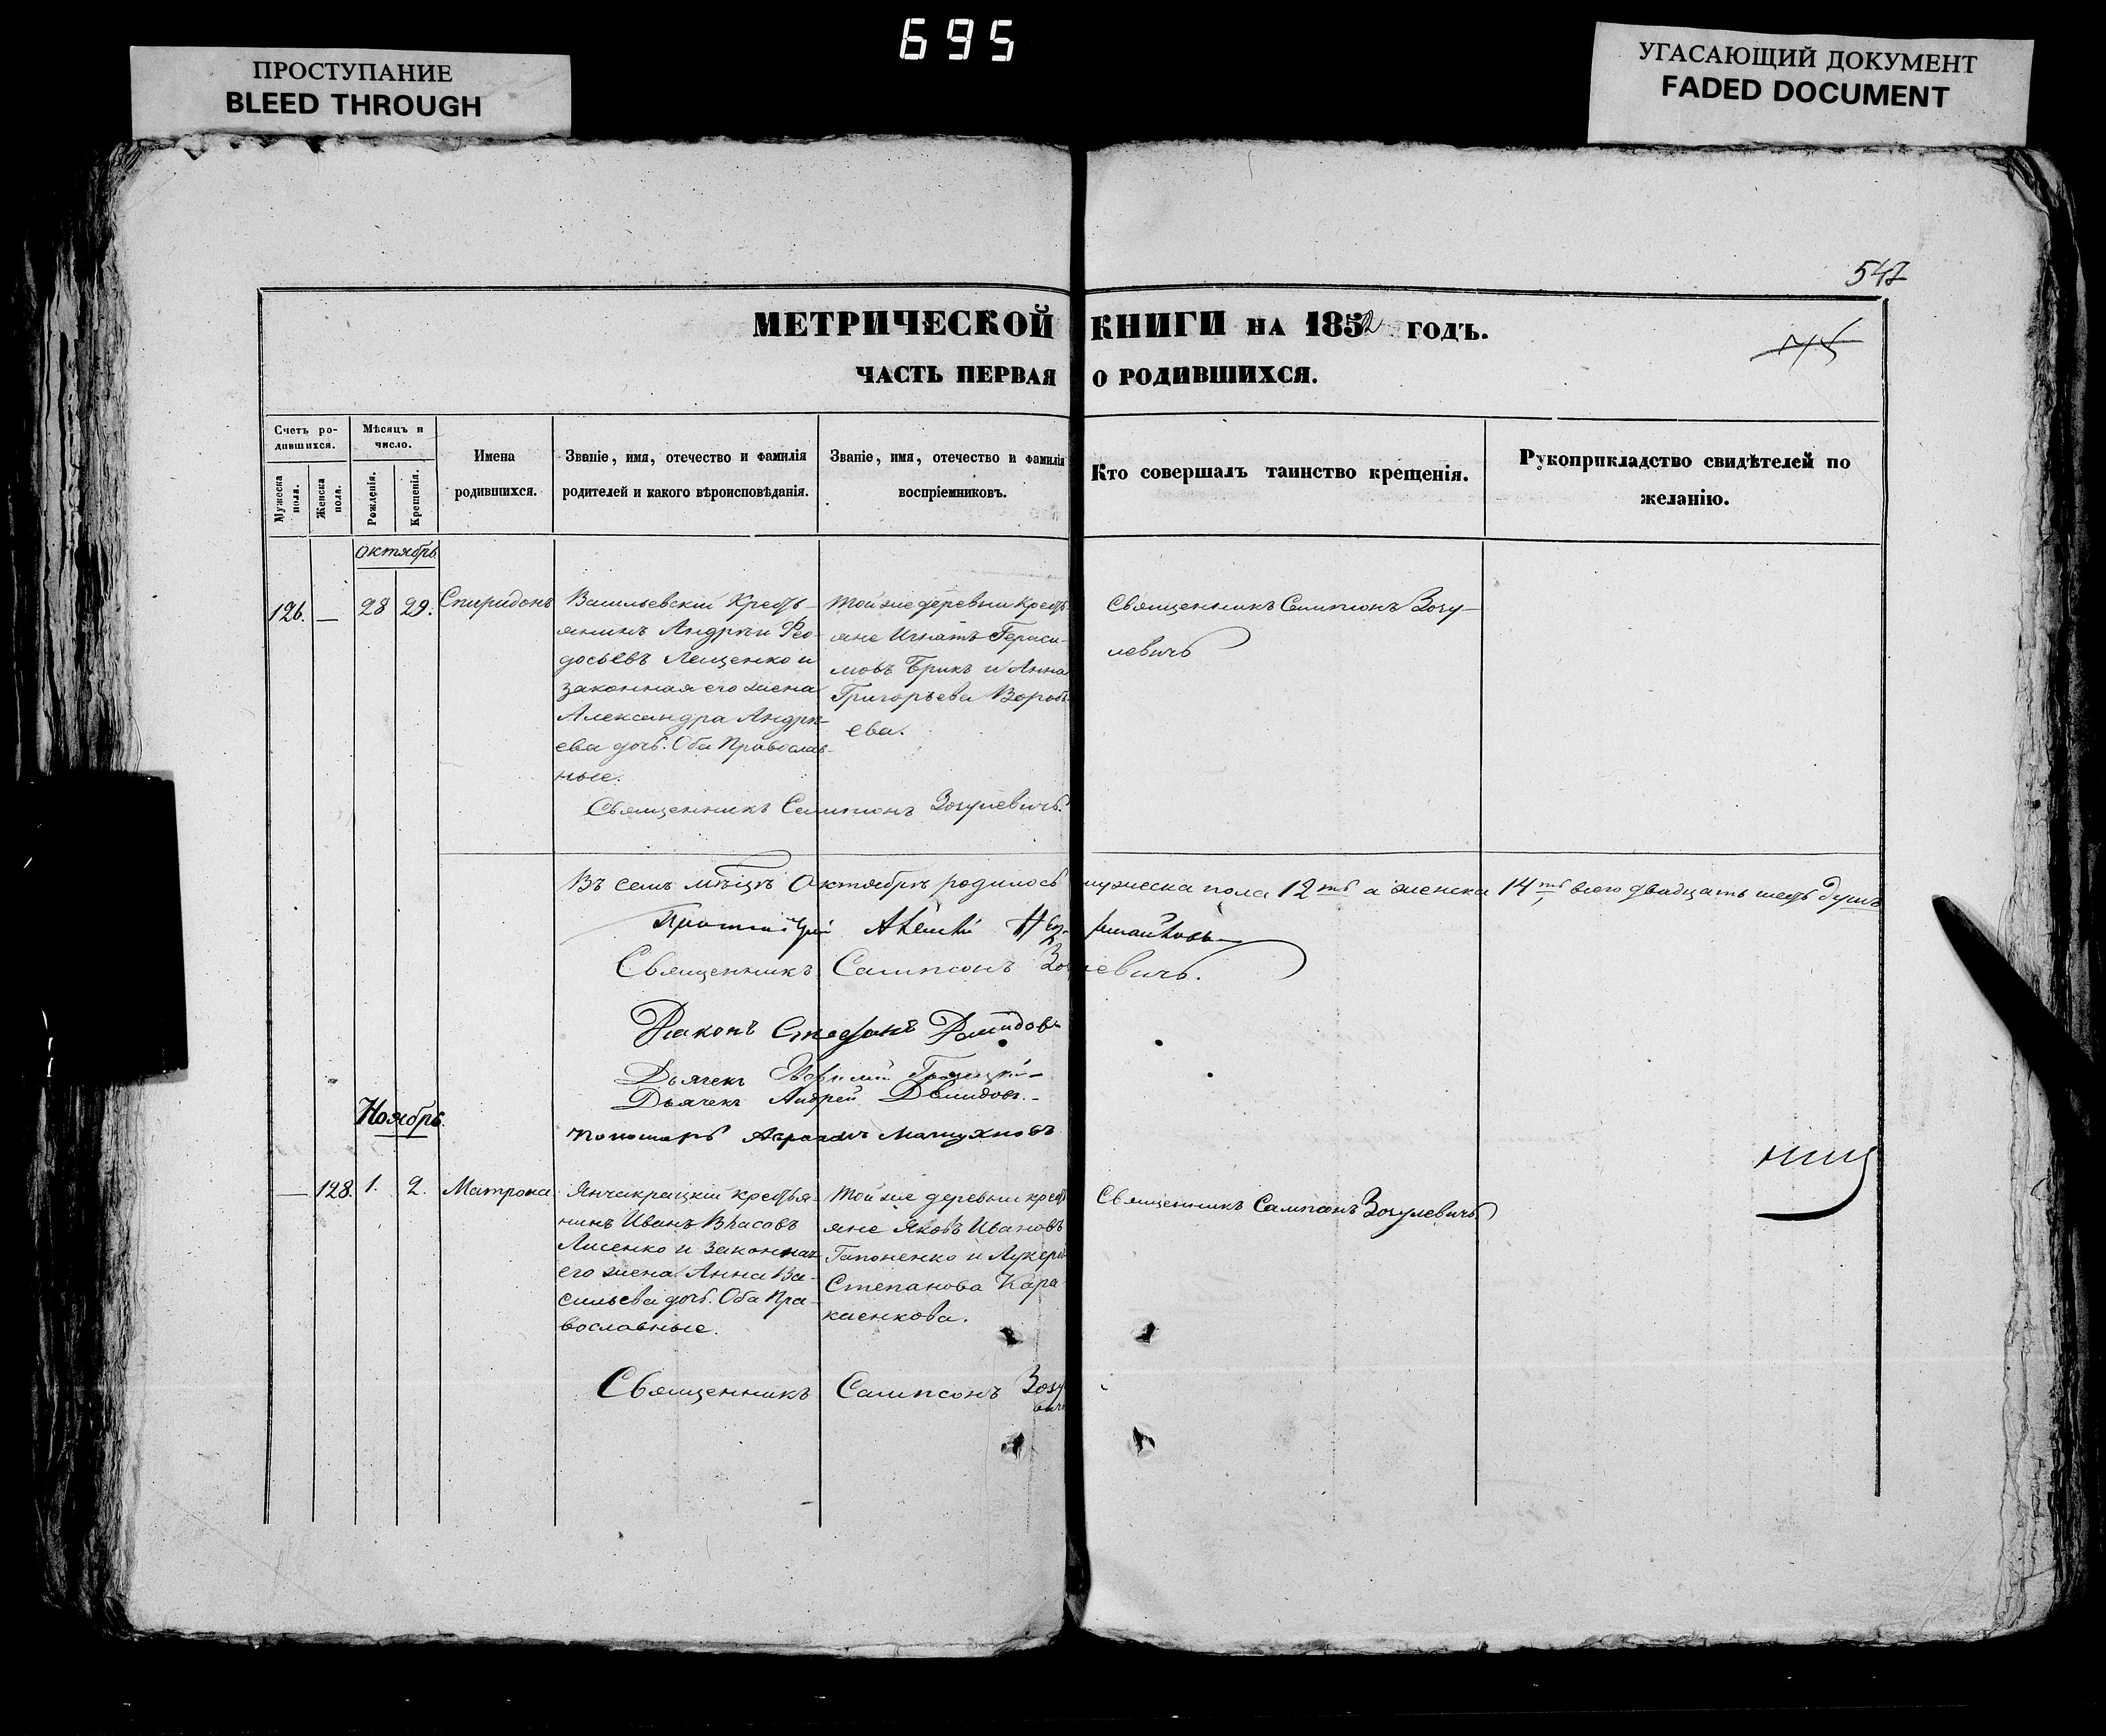 695
ПРОСТУПАНИЕ
BLEED THROUGH
УГАСАЮЩИЙ ДОКУМЕНТ
FADED DOCUMENT
547
МЕТРИЧЕСКОЙ КНИГИ НА 1852 ГОДЪ.
ЧАСТЬ ПЕРВАЯ О РОДИВШИХСЯ.
Счетъ ро-
дившихся.
Мужеска пола.
Женска пола.
Мѣсяцъ и
число.
Рожденія.
Крещенія.
Имена
родившихся.
Званіе, имя, отечество и фамилія
родителей и какого вѣроисповѣданія.
Званіе, имя, отечество и фамилія
воспріемниковъ.
Кто совершалъ таинство крещенія.
Рукоприкладство свидѣтелей по
желанію.
Октябрь
126. — 28 29. Спиридонъ
Васильевскій Кресть-
янинъ Андрѣй Ѳео-
досьевъ Лещенко и
законная его жена
Александра Андрѣ-
ева дочь. Оба Православ-
ные.
Той же деревни Кресть-
яне Игнатъ Гераси-
мовъ Брикъ и Анна
Григорьева Воробь-
ева.
Священникъ Сампсонъ Зозу-
левичъ
Священникъ Сампсонъ Зозулевичъ.
Въ семъ мѣсяцѣ Октябрѣ родилось мужеска пола 12ть а женска 14ть всего двадцать шесть душъ
Протоіерей
Священникъ Сампсонъ Зозулевичъ.
Діаконъ Стефанъ Демидовъ
Дьячекъ
Дьячекъ Андрей Демидовъ.
Пономарь
Ноябрь.
— 128. 1. 2. Матрона
Янчакракскій крестья-
нинъ Иванъ Власовъ
Лисенко и законная
его жена Анна Ва-
сильева дочь. Оба Пра-
вославные.
Той же деревни кресть
яне Яковъ Ивановъ
Гапоненко и Лукерья
Степанова Кара-
каенкова.
Священникъ Сампсонъ Зозулевичъ
Священникъ Сампсонъ